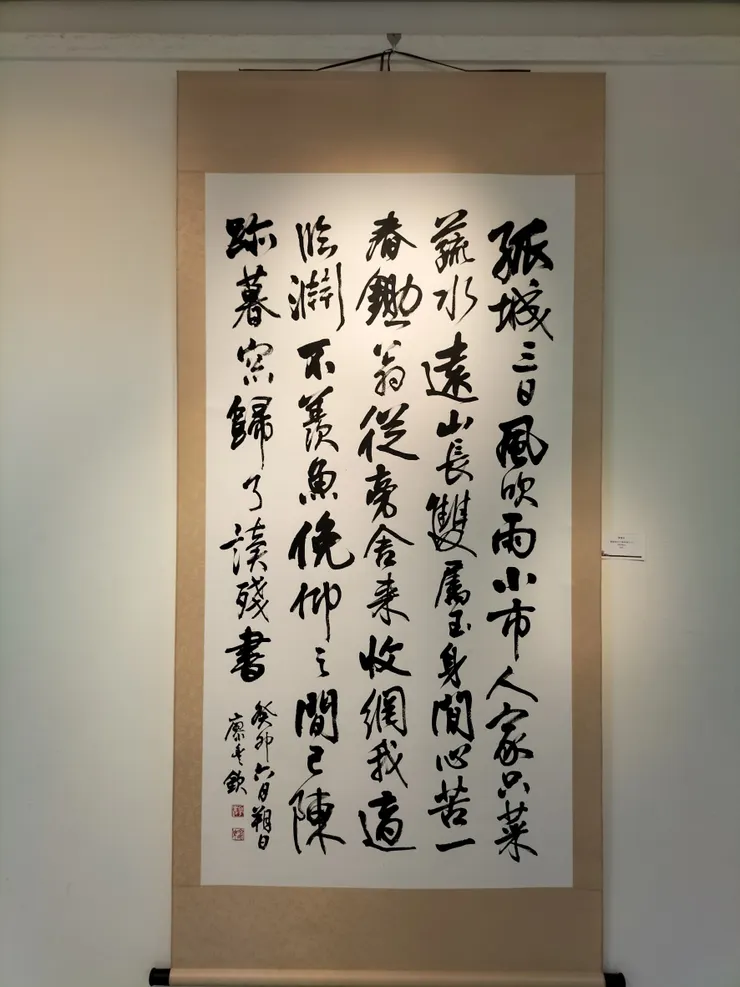 孤城三日風吹雨小市人家只菜
蔬水遠山長雙屬玉身閒心苦一
舂鋤翁從旁舍來收網我適
臨淵不羨魚俛仰之間已陳
跡暮窓歸了讀殘書
癸卯六月朔日